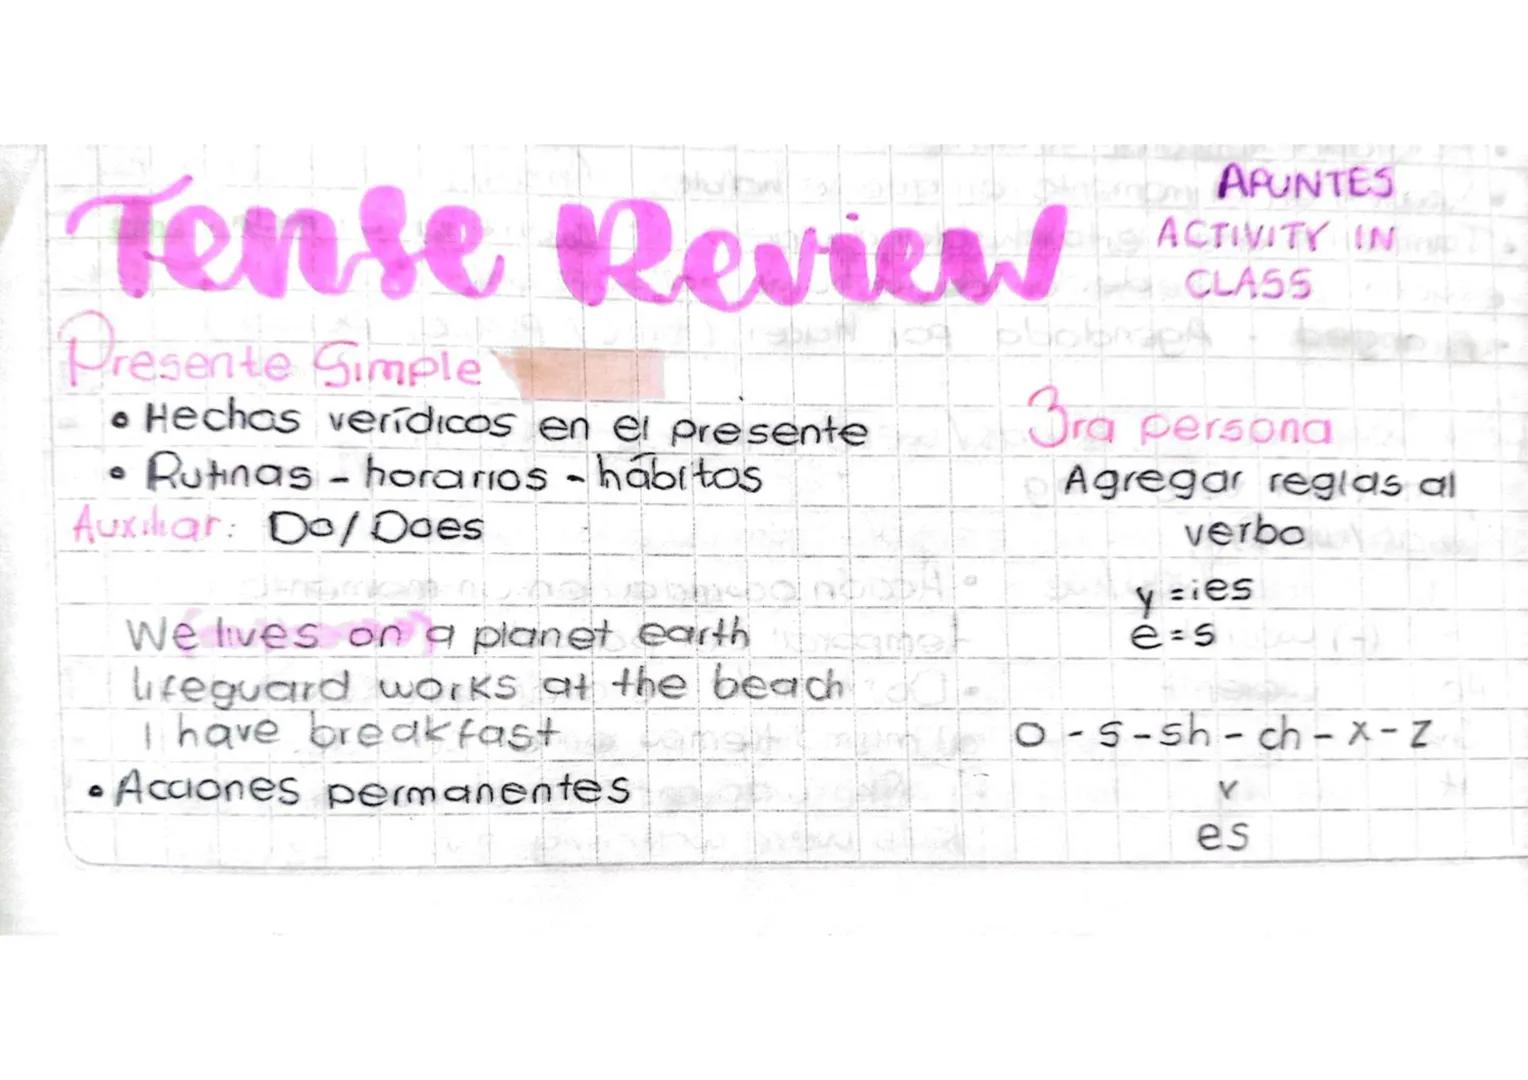 Tense Review
APUNTES
ACTIVITY IN
CLASS
Presente Simple
• Hechos verídicos en el presente
• Rutinas - horarios - hábitos
Auxiliar: Do/Does
We lives on a planet earth
lifeguard works at the beach
I have breakfast
• Acciones permanentes
3ra persona
Agregar reglas al
verbo
y = ies
e = s
O - s - sh - ch - x - z
v
es